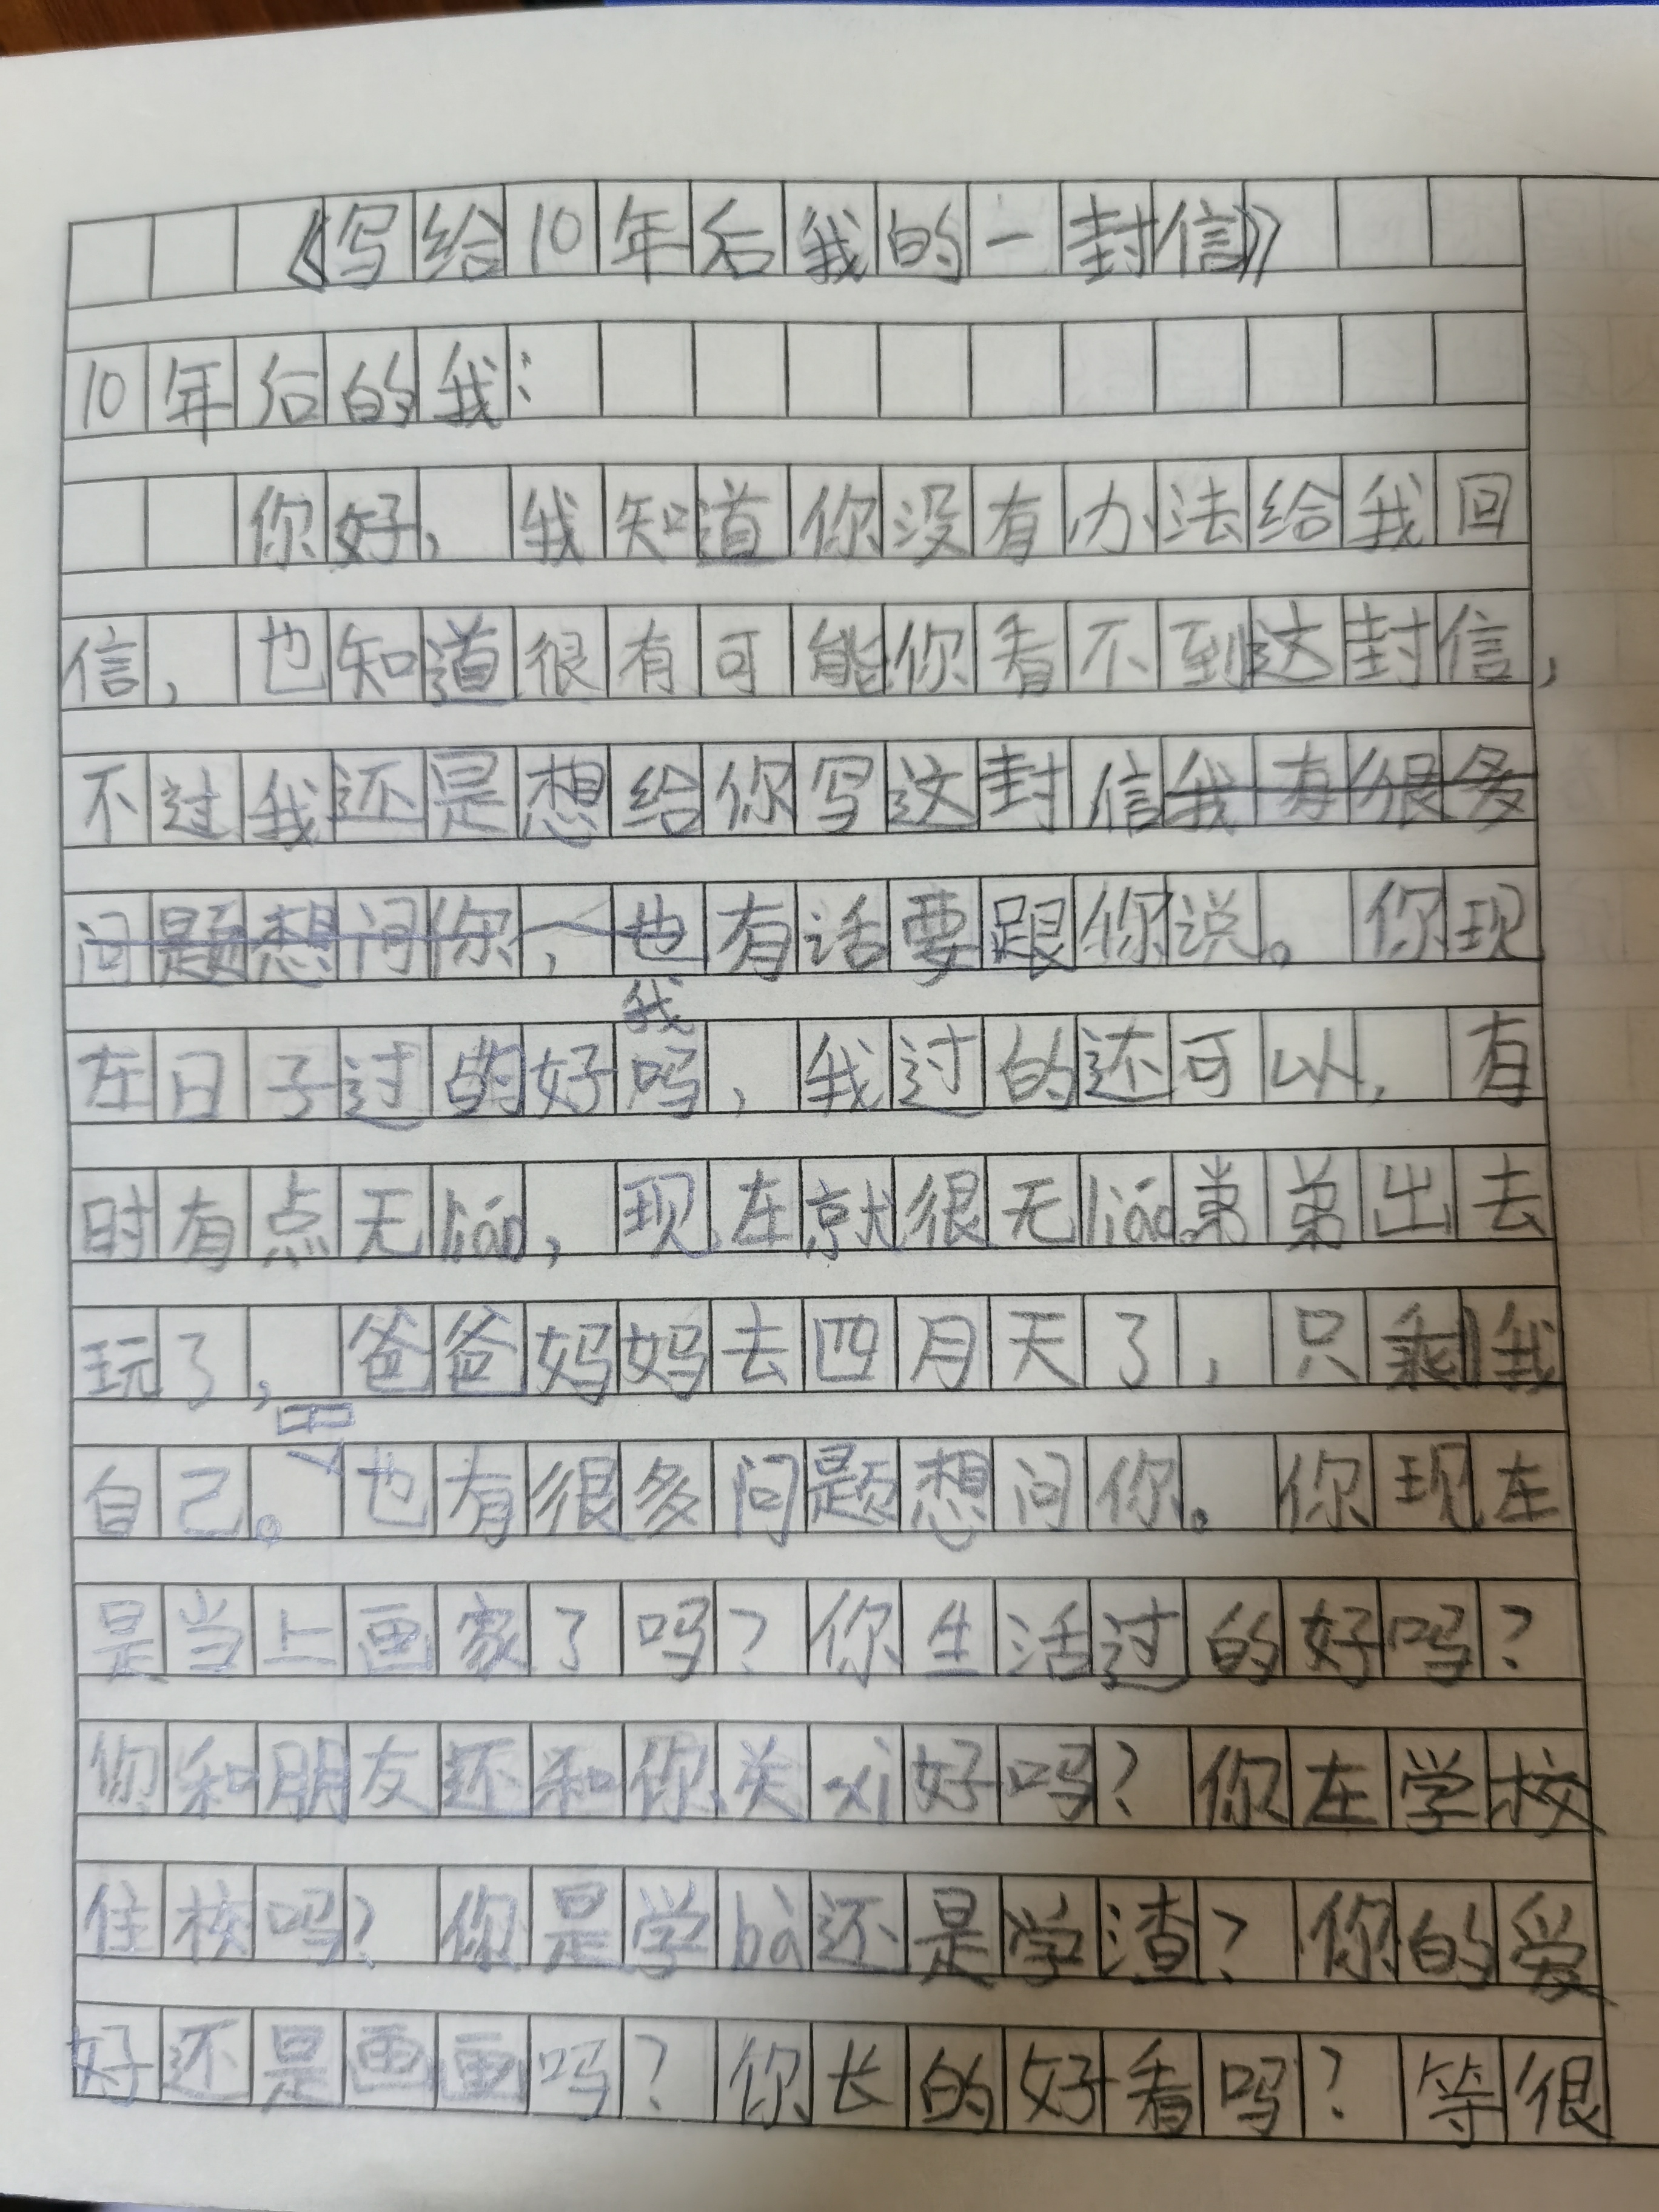 《写给10年后我的一封信》
10年后的我：
你好，我知道你没有办法给我回
信，也知道很有可能你看不到这封信，
不过我还是想给你写这封信我有很多
问题想问你，也有话要跟你说。你现
我
在日子过的好吗，我过的还可以，有
时有点无liáo，现在就很无liáo。弟弟出去
玩了，爸爸妈妈去四月天了，只剩我
自己。也有很多问题想问你。你现在
是当上画家了吗？你生活过的好吗？
你和朋友还和你关xi好吗？你在学校
住校吗？你是学bà还是学渣？你的爱
好还是画画吗？你长的好看吗？等很